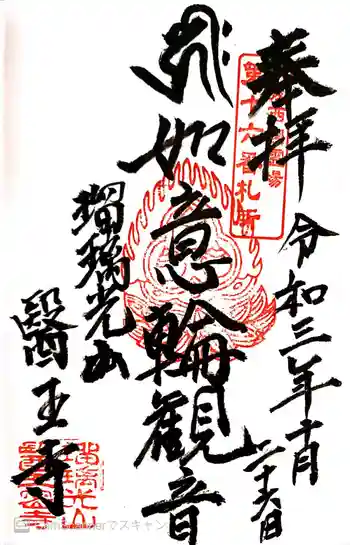 奉拝
第十六番札所
令和三年十一月
二十六日
如意輪觀音
瑠璃光山
醫王寺
瑠璃光山
醫王寺
でスキャン